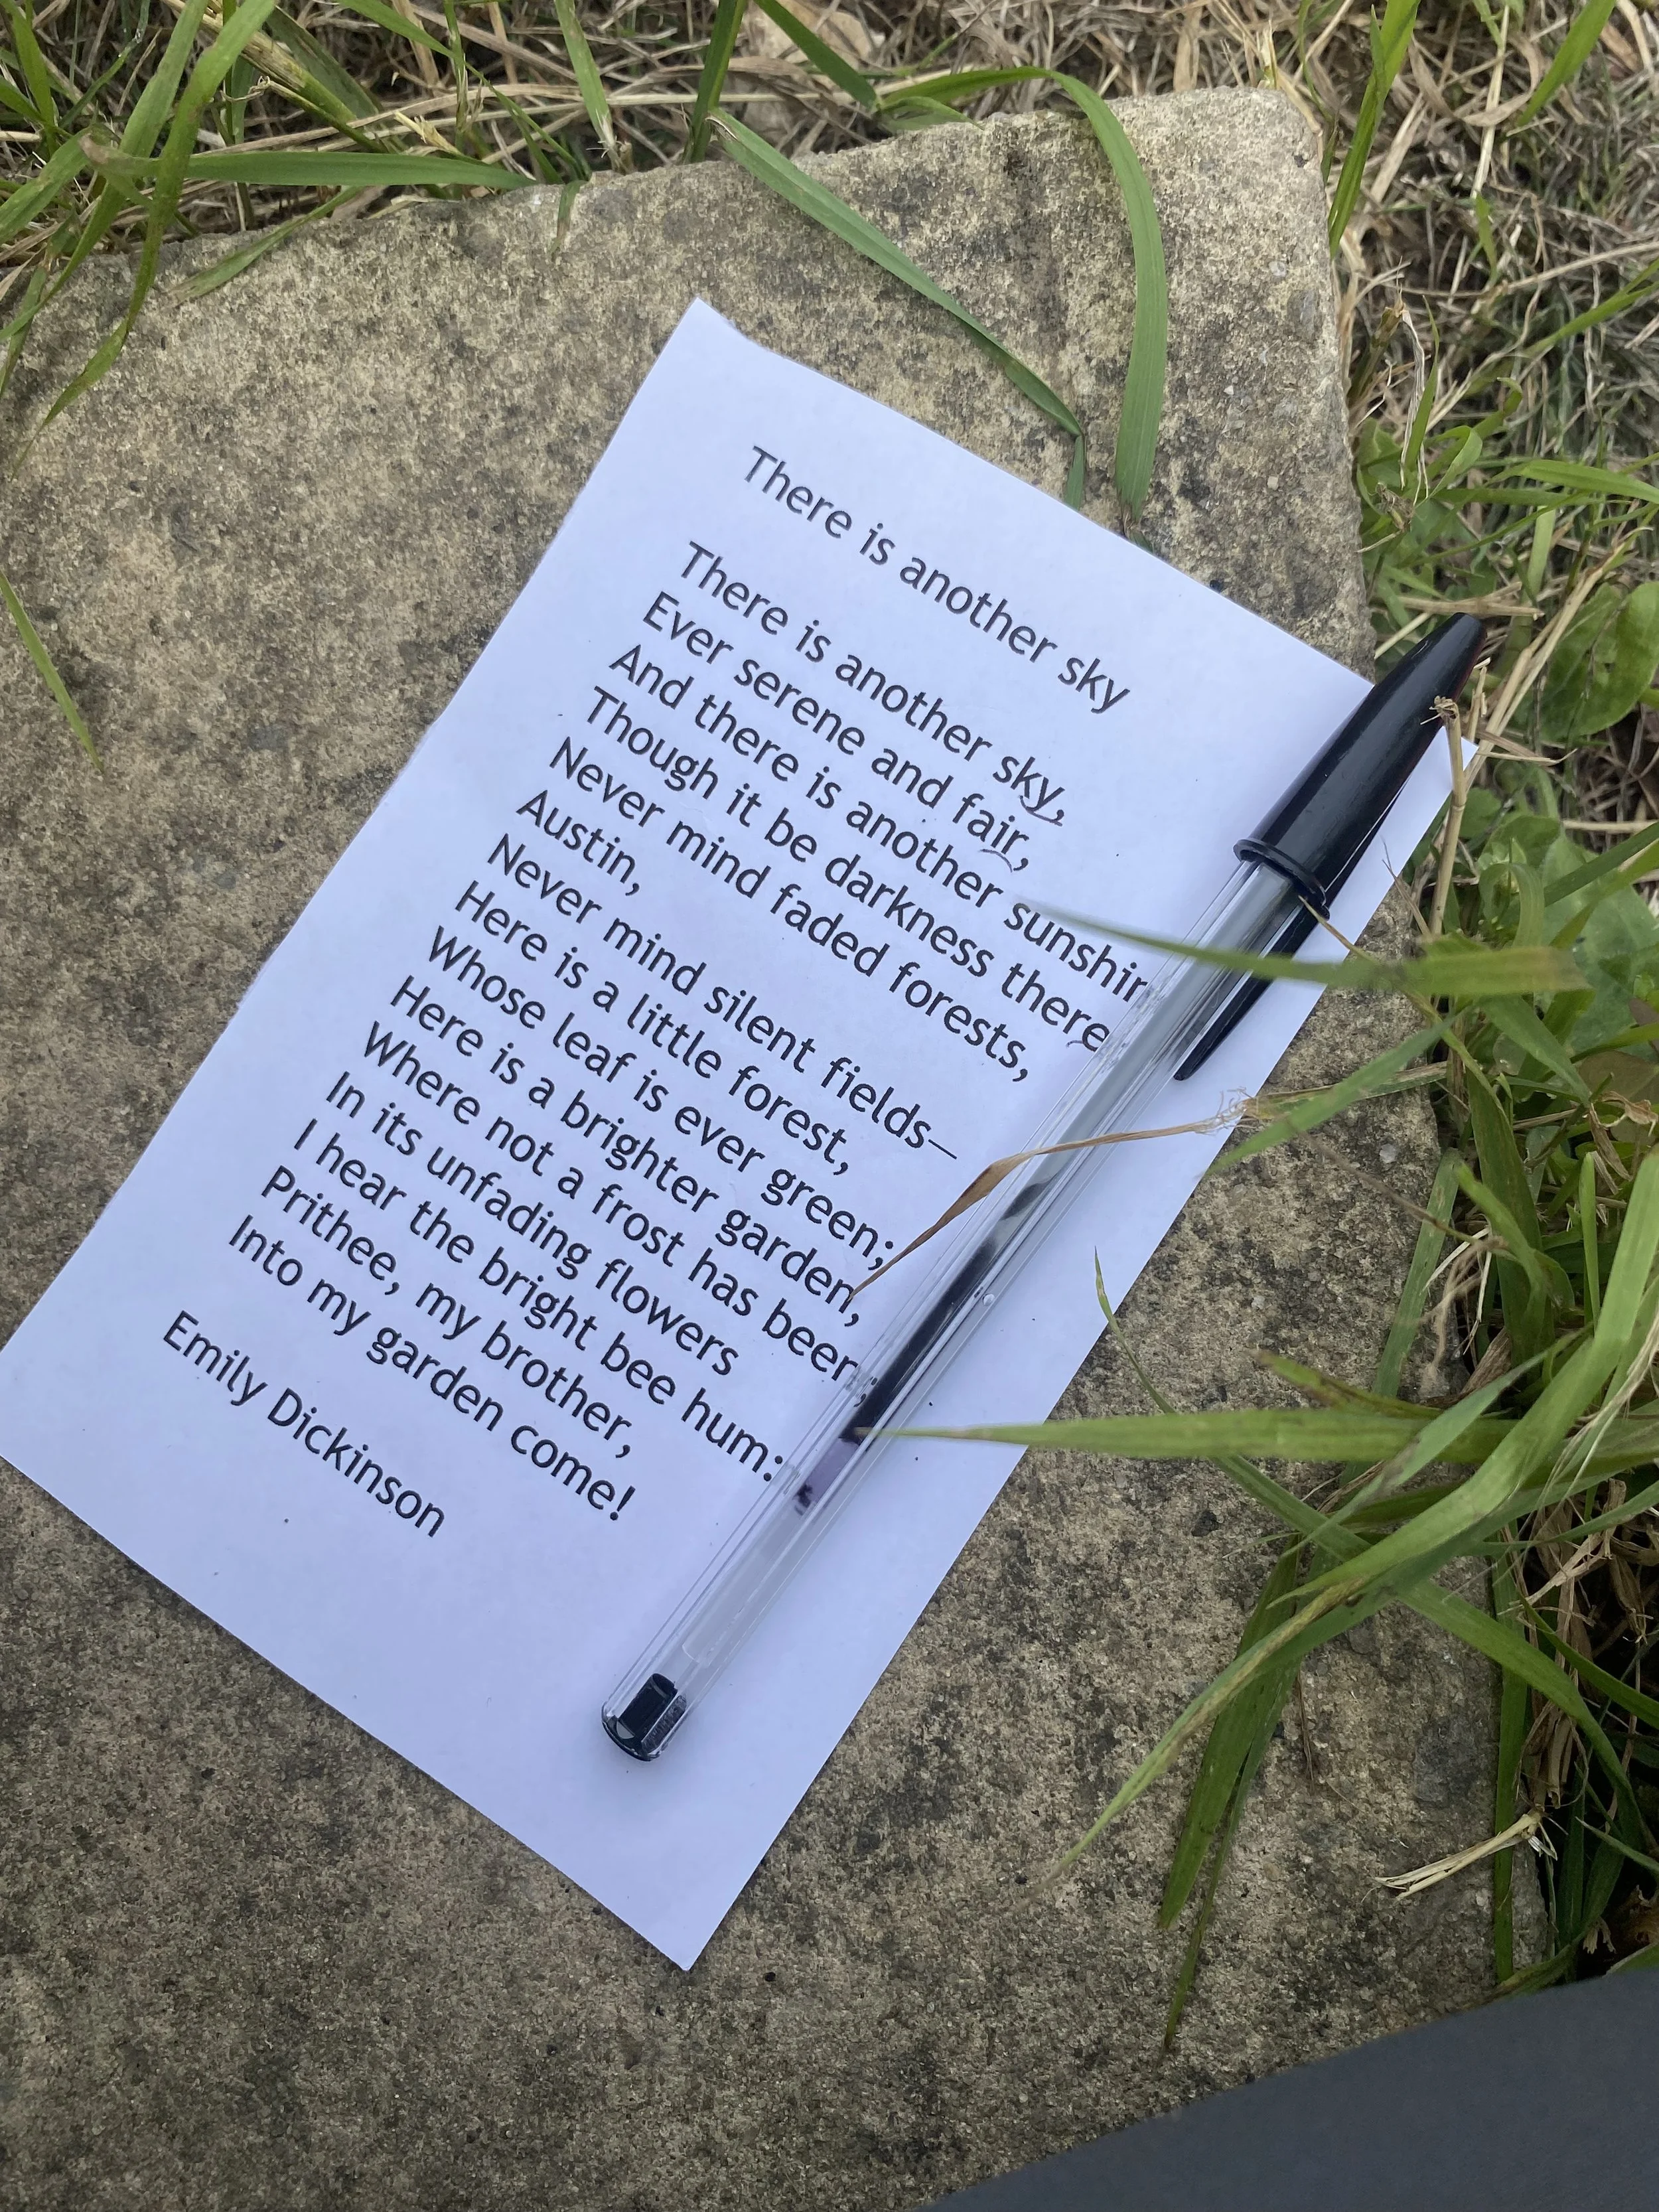 There is another sky
There is another sky,
Ever serene and fair,
And there is another sunshin
Though it be darkness there
Never mind faded forests,
Austin,
Never mind silent fields—
Here is a little forest,
Whose leaf is ever green;
Here is a brighter garden,
Where not a frost has been;
In its unfading flowers
I hear the bright bee hum:
Prithee, my brother,
Into my garden come!
Emily Dickinson